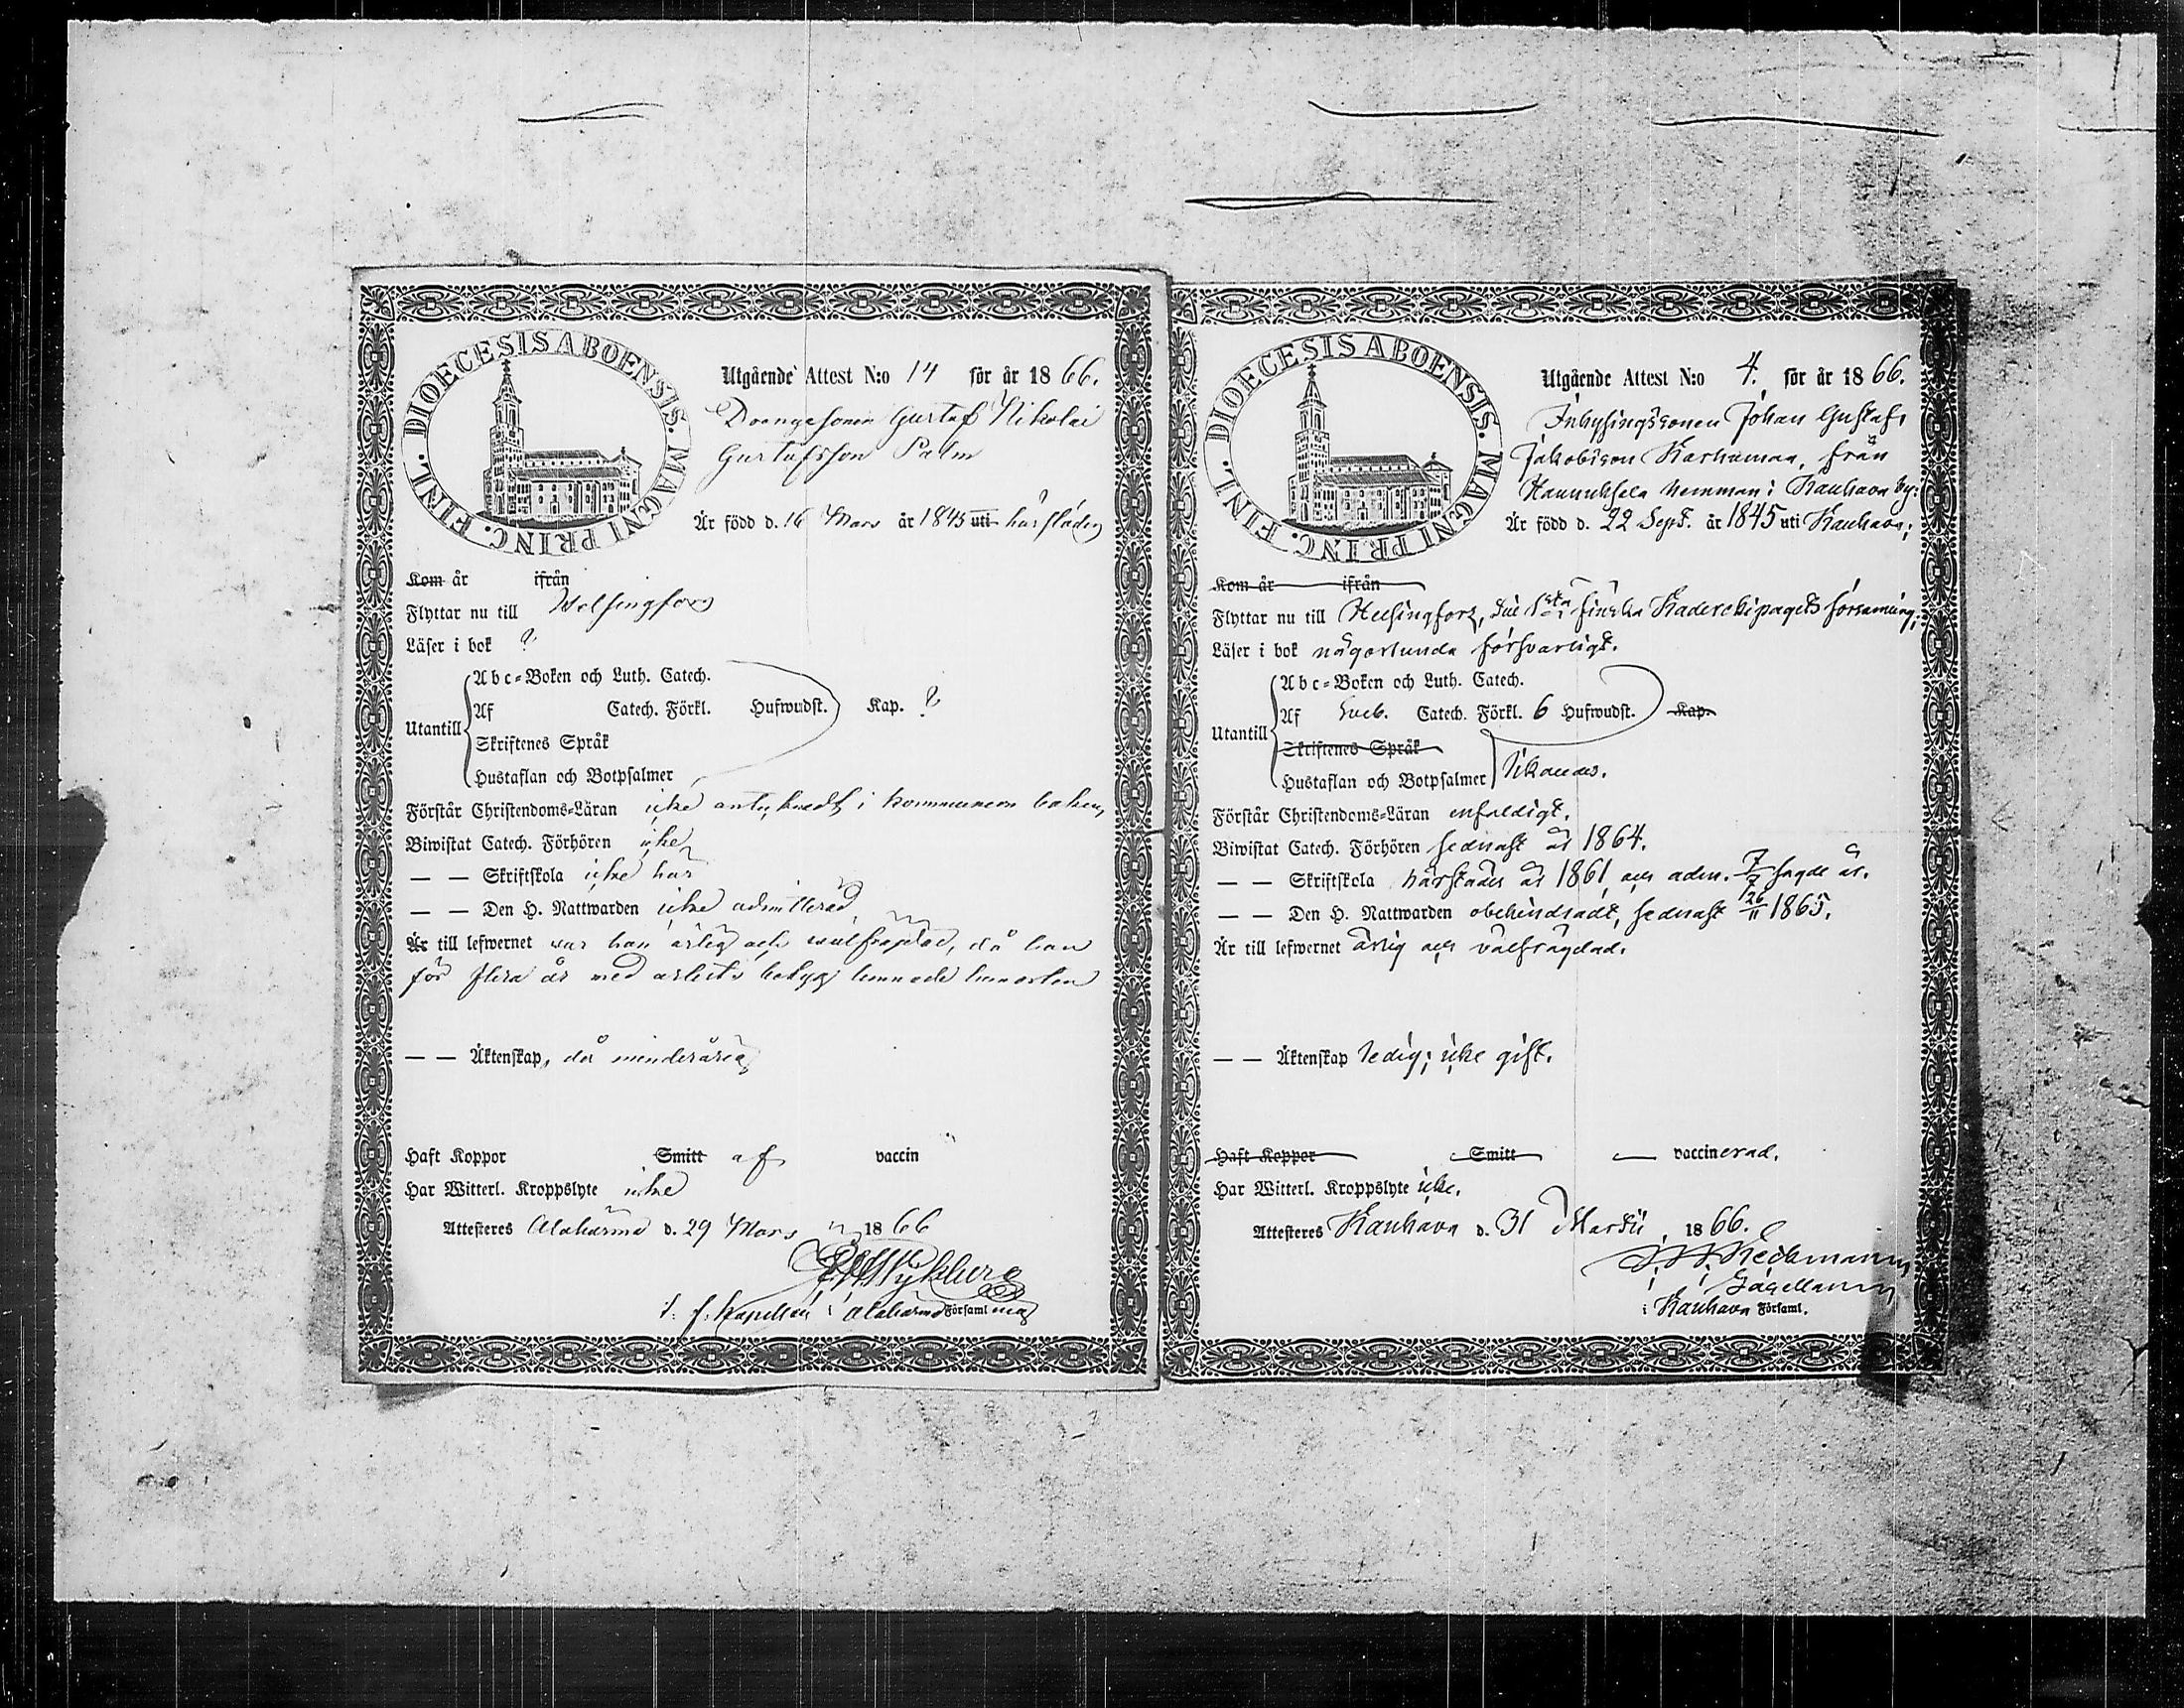 DIOECESIS ABOENSIS. MAGNI PRINC. FINL.
Utgående Attest N:o 14 för år 1866.
Drengesonen Gustaf Nikolai
Gustafsson Palm
Är född d. 16 Mars år 1845 uti härstädes
Kom år ifrån
Flyttar nu till Helsingfors
Läser i bok ?
Utantill
Abc-Boken och Luth. Catech.
Af Catech. Förkl. Hufwudst. Kap. ?
Skriftenes Språk
Hustaflan och Botpsalmer
Förstår Christendoms-Läran icke antecknadt i kommunion boken,
Biwistat Catech. Förhören icke
— — Skriftskola icke här
— — Den H. Nattwarden icke admitterad
Är till lefwernet var han ärlig och wälfrejdad, då han
för flera år med arbets betyg lemnade hemorten
— — Äktenskap, då minderårig
Haft Koppor Smitt af vaccin
Har Witterl. Kroppslyte icke
Attesteres Alahärmä d. 29 Mars 1866
t. f. Kapellan i Alahärmä Församl ing
DIOECESIS ABOENSIS. MAGNI PRINC. FINL.
Utgående Attest N:o 4. för år 1866.
Inhysingssonen Johan Gustaf
Jakobsson Karhumaa, från
Hannuksela hemman i Kauhava by:
Är född d. 22 Sept. år 1845 uti Kauhava;
Kom år ifrån
Flyttar nu till Helsingfors, 1sta finska församling;
Läser i bok någorlunda försvarligt.
Utantill
Abc-Boken och Luth. Catech.
Af Sveb. Catech. Förkl. 6 Hufwudst. Kap.
Skriftenes Språk
Hustaflan och Botpsalmer
Förstår Christendoms-Läran enfaldigt.
Biwistat Catech. Förhören sednast år 1864.
— — Skriftskola härstädes år 1861 och adm. sagde år.
— — Den H. Nattwarden obehindradt, sednast 26/11 1865.
Är till lefwernet ärlig och välfrägdad.
— — Äktenskap ledig; icke gift.
Haft Koppor Smitt vaccinerad.
Har Witterl. Kroppslyte icke.
Attesteres Kauhava d. 31 Martii 1866.
i Kauhava Församl.